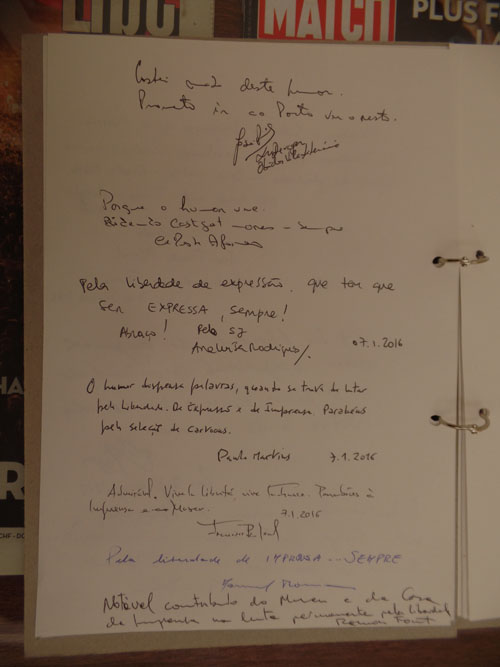 LIDC
MATCH
PLUS F
LA
Gostei muito deste humor.
Prometo ir ao Porto ver o resto.
Porque o humor vive.
Ridendo Castigat mores – sempre
Pela liberdade de expressão, que tem que
ser EXPRESSA, sempre!
Abraço! Pelo SJ
Ana Luísa Rodrigues/. 07.1.2016
O humor dispensa palavras, quando se trata de lutar
pela liberdade. De Expressão e de Imprensa. Parabéns
pela seleção de cartoons.
Paulo Martins 7.1.2016
Admirável. Vive la liberté, vive la France. Parabéns à
Imprensa e ao Museu.
7.1.2016
Pela liberdade de IMPRENSA... SEMPRE
Notável contributo do Museu e da Casa
da Imprensa na luta permanente pela liberdade
Ramon Font